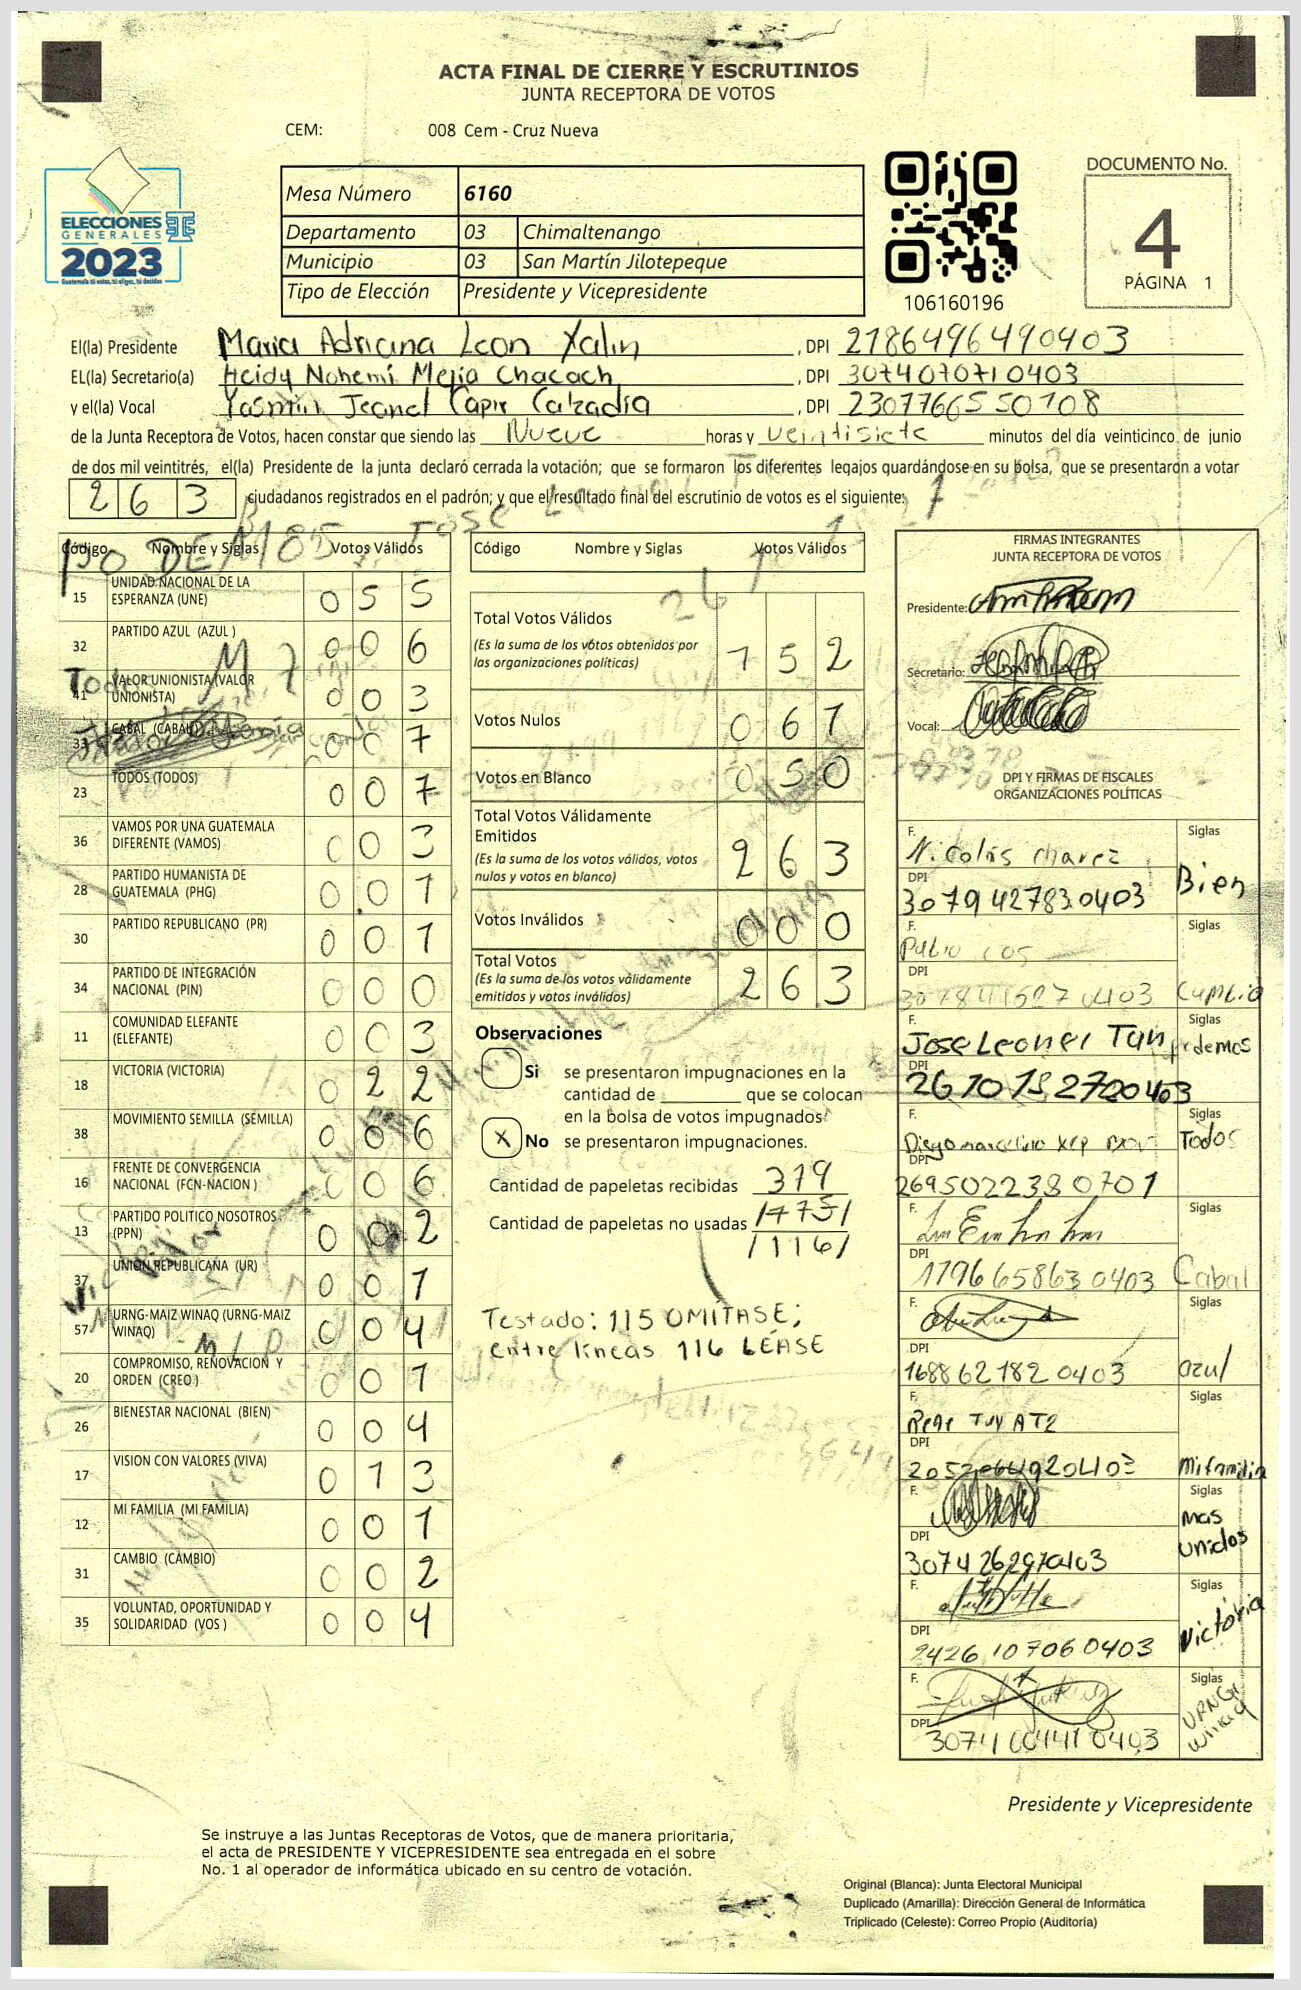 ACTA FINAL DE CIERRE Y ESCRUTINIOS
JUNTA RECEPTORA DE VOTOS
CEM: 008 Cem - Cruz Nueva
ELECCIONES
GENERALES
2023
Mesa Número 6160
Departamento 03 Chimaltenango
Municipio 03 San Martín Jilotepeque
Tipo de Elección Presidente y Vicepresidente
106160196
DOCUMENTO No.
4
PÁGINA 1
El(la) Presidente Maria Adriana Leon Xalin, DPI 2186496490403
EL(la) Secretario(a) Heidy Nohemí Mejia Chacach, DPI 3074070710403
y el(la) Vocal Yasmin Jeanel Capir Calzadia, DPI 2307766550108
de la Junta Receptora de Votos, hacen constar que siendo las Nueve horas y veintisiete minutos del día veinticinco de junio
de dos mil veintitrés, el(la) Presidente de la junta declaró cerrada la votación; que se formaron los diferentes legajos guardándose en su bolsa, que se presentaron a votar
263 ciudadanos registrados en el padrón; y que el resultado final del escrutinio de votos es el siguiente:
Código Nombre y Siglas Votos Válidos
15 UNIDAD NACIONAL DE LA ESPERANZA (UNE) 055
32 PARTIDO AZUL (AZUL ) 006
41 VALOR UNIONISTA (VALOR UNIONISTA) 003
33 CABAL (CABAL) 007
23 TODOS (TODOS) 007
36 VAMOS POR UNA GUATEMALA DIFERENTE (VAMOS) 003
28 PARTIDO HUMANISTA DE GUATEMALA (PHG) 001
30 PARTIDO REPUBLICANO (PR) 001
34 PARTIDO DE INTEGRACIÓN NACIONAL (PIN) 000
11 COMUNIDAD ELEFANTE (ELEFANTE) 003
18 VICTORIA (VICTORIA) 022
38 MOVIMIENTO SEMILLA (SEMILLA) 006
16 FRENTE DE CONVERGENCIA NACIONAL (FCN-NACION ) 006
13 PARTIDO POLITICO NOSOTROS (PPN) 002
37 UNION REPUBLICANA (UR) 001
57 URNG-MAIZ WINAQ (URNG-MAIZ WINAQ) 004
20 COMPROMISO, RENOVACION Y ORDEN (CREO ) 001
26 BIENESTAR NACIONAL (BIEN) 004
17 VISION CON VALORES (VIVA) 013
12 MI FAMILIA (MI FAMILIA) 001
31 CAMBIO (CAMBIO) 002
35 VOLUNTAD, OPORTUNIDAD Y SOLIDARIDAD (VOS ) 004
Código Nombre y Siglas Votos Válidos
Total Votos Válidos 152
(Es la suma de los votos obtenidos por
las organizaciones políticas)
Votos Nulos 061
Votos en Blanco 050
Total Votos Válidamente
Emitidos 263
(Es la suma de los votos válidos, votos
nulos y votos en blanco)
Votos Inválidos 000
Total Votos 263
(Es la suma de los votos válidamente
emitidos y votos inválidos)
Observaciones
Si se presentaron impugnaciones en la
cantidad de ________ que se colocan
en la bolsa de votos impugnados
X No se presentaron impugnaciones.
Cantidad de papeletas recibidas 379
Cantidad de papeletas no usadas
/116/
Testado: 115 OMITASE;
entre líneas 116 LÉASE
FIRMAS INTEGRANTES
JUNTA RECEPTORA DE VOTOS
Presidente:
Secretario:
Vocal:
DPI Y FIRMAS DE FISCALES
ORGANIZACIONES POLÍTICAS
F. Nicolás Chavez Siglas
DPI 3079427830403 Bien
F. Siglas
DPI Cambio
F. Jose Leonel Tun Siglas
DPI 2610182700403 prdemos
F. Diego marcelino Siglas
DPI 2695022380701 Todos
F. Siglas
DPI 1796658630403 Cabal
F. Siglas
DPI 1688621820403 azul
F. Rene Siglas
DPI mi familia
F. Siglas
DPI 3074262970403 mas unidos
F. Siglas
DPI 2426107060403 Victoria
F. Siglas
DPI URNG
Presidente y Vicepresidente
Se instruye a las Juntas Receptoras de Votos, que de manera prioritaria,
el acta de PRESIDENTE Y VICEPRESIDENTE sea entregada en el sobre
No. 1 al operador de informática ubicado en su centro de votación.
Original (Blanca): Junta Electoral Municipal
Duplicado (Amarilla): Dirección General de Informática
Triplicado (Celeste): Correo Propio (Auditoría)